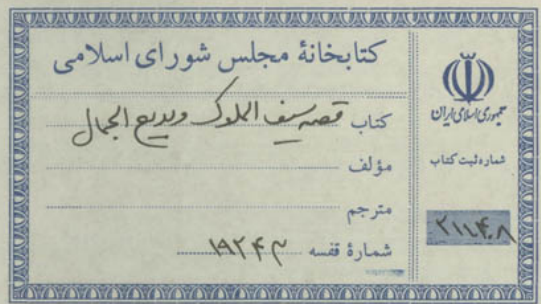 کتابخانهٔ مجلس شورای اسلامی
کتاب قصه سیف الملوک وبدیع الجمال
مؤلف
مترجم
شمارهٔ قفسه ۱۹۲۴۳
جمهوری اسلامی ایران
شماره ثبت کتاب
۲۱۱۴۰۸